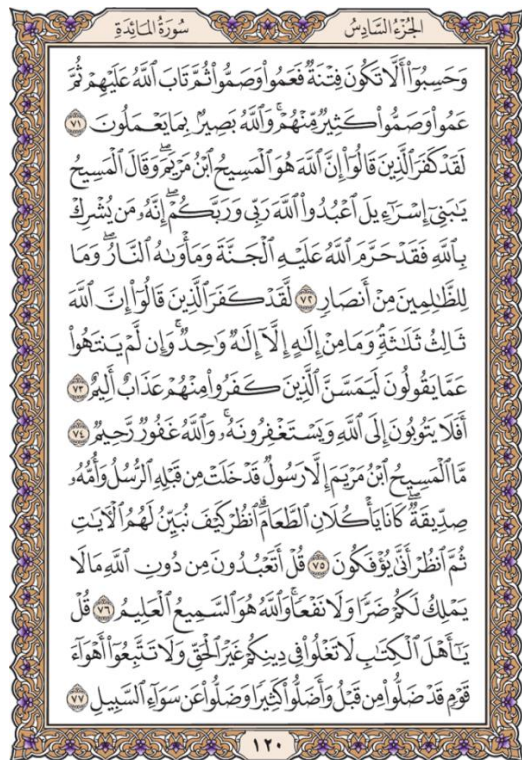 الجُزْءُ السَّادِسُ سُورَةُ المَائِدَةِ
وَحَسِبُوٓا۟ أَلَّا تَكُونَ فِتْنَةٌ فَعَمُوا۟ وَصَمُّوا۟ ثُمَّ تَابَ ٱللَّهُ عَلَيْهِمْ ثُمَّ
عَمُوا۟ وَصَمُّوا۟ كَثِيرٌ مِّنْهُمْ ۚ وَٱللَّهُ بَصِيرٌۢ بِمَا يَعْمَلُونَ ٧١
لَقَدْ كَفَرَ ٱلَّذِينَ قَالُوٓا۟ إِنَّ ٱللَّهَ هُوَ ٱلْمَسِيحُ ٱبْنُ مَرْيَمَ ۖ وَقَالَ ٱلْمَسِيحُ
يَـٰبَنِىٓ إِسْرَٰٓءِيلَ ٱعْبُدُوا۟ ٱللَّهَ رَبِّى وَرَبَّكُمْ ۖ إِنَّهُۥ مَن يُشْرِكْ
بِٱللَّهِ فَقَدْ حَرَّمَ ٱللَّهُ عَلَيْهِ ٱلْجَنَّةَ وَمَأْوَىٰهُ ٱلنَّارُ ۖ وَمَا
لِلظَّـٰلِمِينَ مِنْ أَنصَارٍ ٧٢ لَّقَدْ كَفَرَ ٱلَّذِينَ قَالُوٓا۟ إِنَّ ٱللَّهَ
ثَالِثُ ثَلَـٰثَةٍ ۘ وَمَا مِنْ إِلَـٰهٍ إِلَّآ إِلَـٰهٌ وَٰحِدٌ ۚ وَإِن لَّمْ يَنتَهُوا۟
عَمَّا يَقُولُونَ لَيَمَسَّنَّ ٱلَّذِينَ كَفَرُوا۟ مِنْهُمْ عَذَابٌ أَلِيمٌ ٧٣
أَفَلَا يَتُوبُونَ إِلَى ٱللَّهِ وَيَسْتَغْفِرُونَهُۥ ۚ وَٱللَّهُ غَفُورٌ رَّحِيمٌ ٧٤
مَّا ٱلْمَسِيحُ ٱبْنُ مَرْيَمَ إِلَّا رَسُولٌ قَدْ خَلَتْ مِن قَبْلِهِ ٱلرُّسُلُ وَأُمُّهُۥ
صِدِّيقَةٌ ۖ كَانَا يَأْكُلَانِ ٱلطَّعَامَ ۗ ٱنظُرْ كَيْفَ نُبَيِّنُ لَهُمُ ٱلْـَٔايَـٰتِ
ثُمَّ ٱنظُرْ أَنَّىٰ يُؤْفَكُونَ ٧٥ قُلْ أَتَعْبُدُونَ مِن دُونِ ٱللَّهِ مَا لَا
يَمْلِكُ لَكُمْ ضَرًّا وَلَا نَفْعًا ۚ وَٱللَّهُ هُوَ ٱلسَّمِيعُ ٱلْعَلِيمُ ٧٦ قُلْ
يَـٰٓأَهْلَ ٱلْكِتَـٰبِ لَا تَغْلُوا۟ فِى دِينِكُمْ غَيْرَ ٱلْحَقِّ وَلَا تَتَّبِعُوٓا۟ أَهْوَآءَ
قَوْمٍ قَدْ ضَلُّوا۟ مِن قَبْلُ وَأَضَلُّوا۟ كَثِيرًا وَضَلُّوا۟ عَن سَوَآءِ ٱلسَّبِيلِ ٧٧
١٢٠